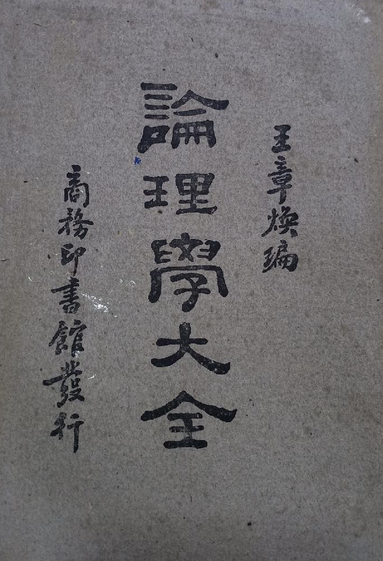 王章煥編
論理學大全
商務印書館發行